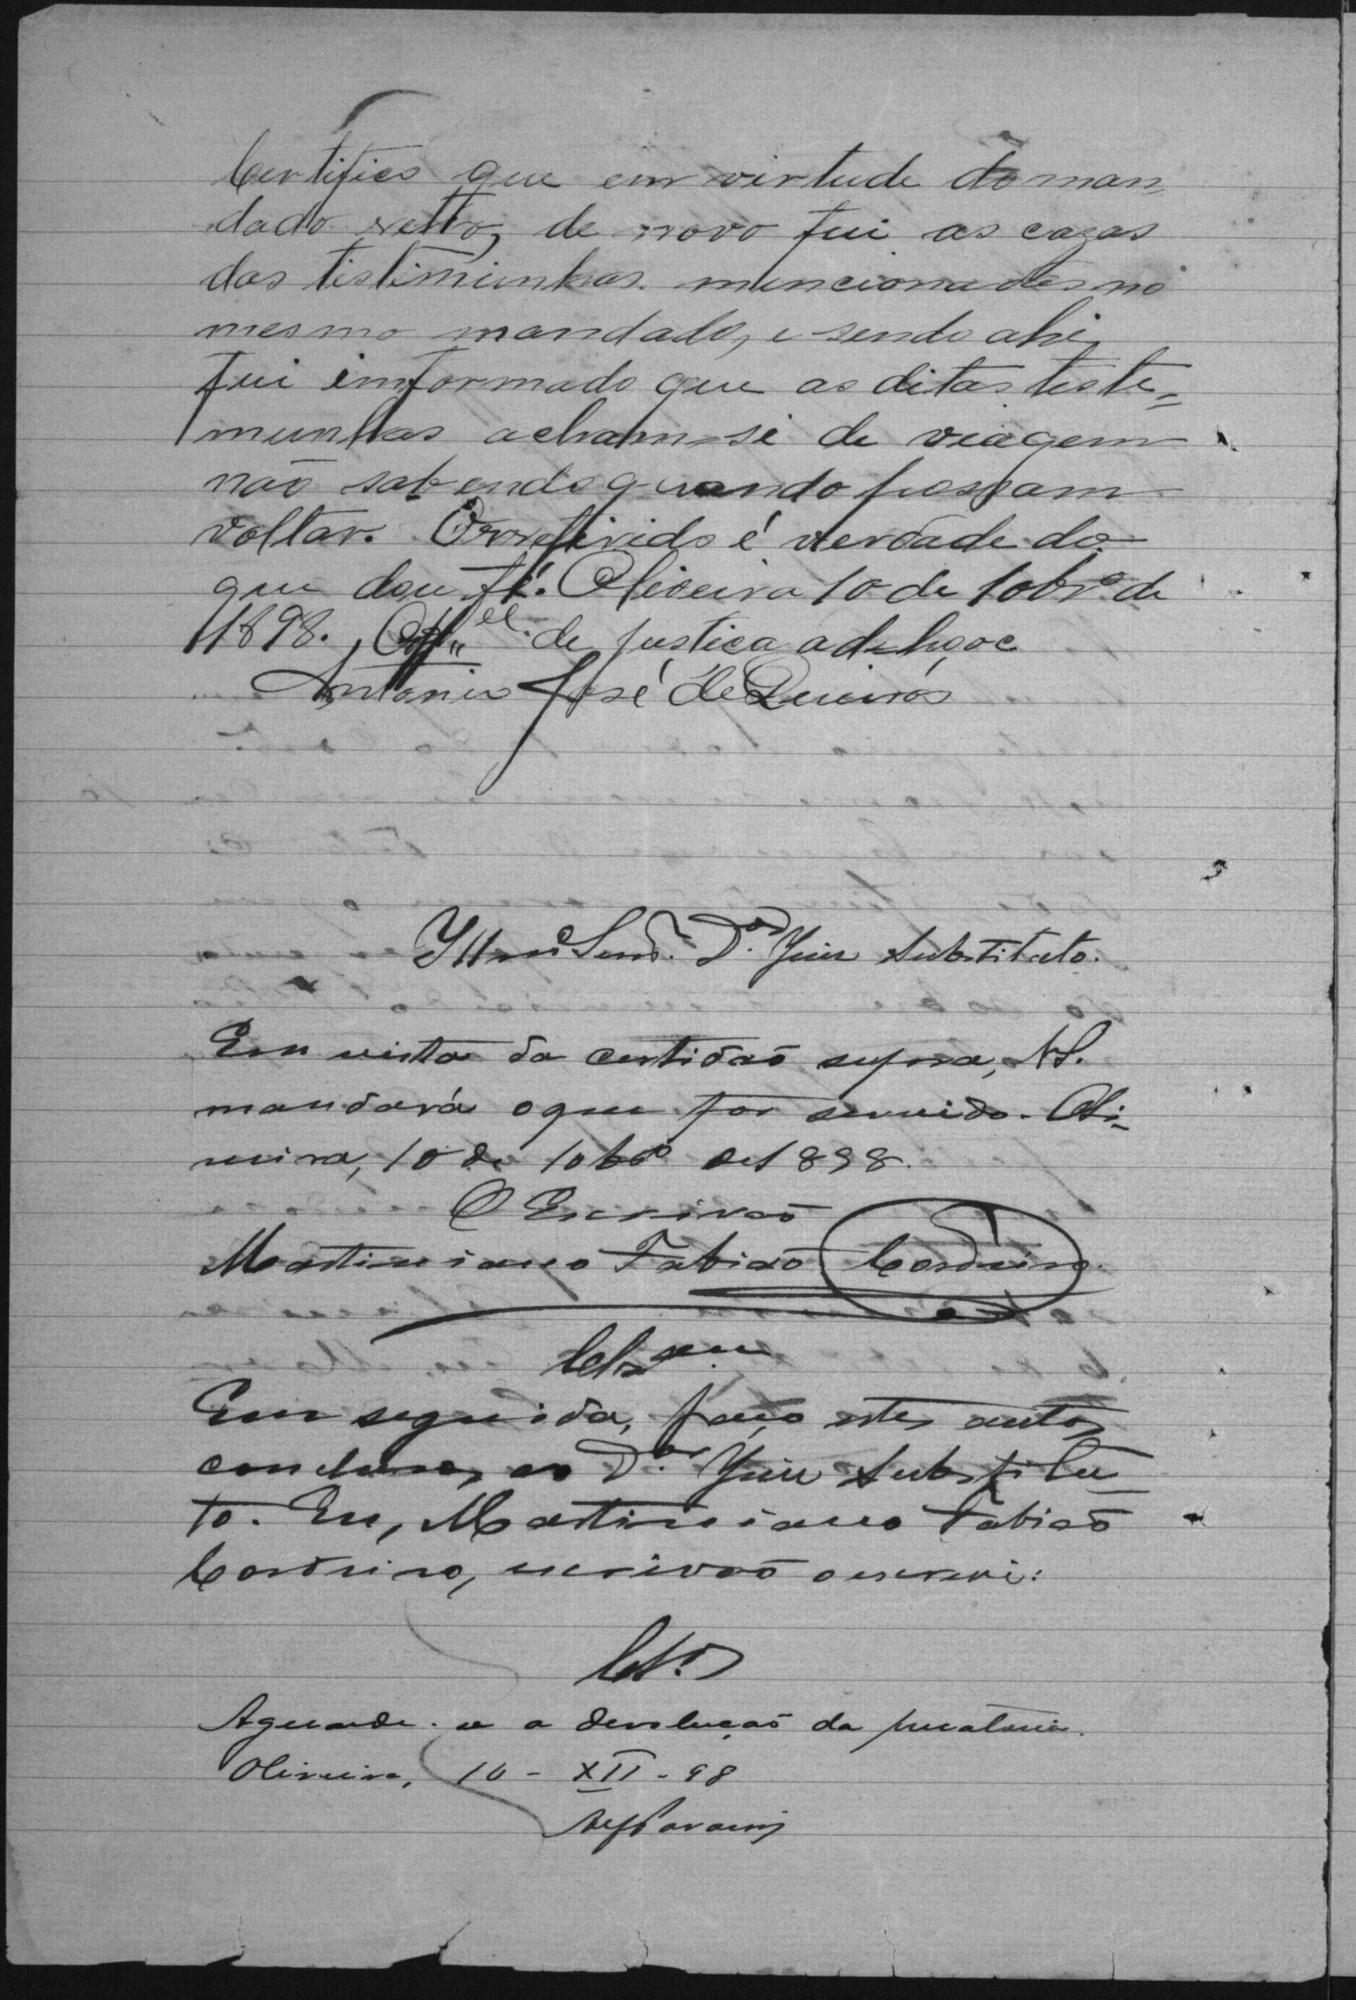 Certifico que em virtude do man
dado retro, de novo fui as cazas
das tistimunhas mencionadas no
mesmo mandado, e sendo ahi,
fui imformado que as ditas teste=
munhas acham-se de viagem
não sabendo quando possam
voltar. O referido é verdade do
que dou fé. Oliveira 10 de 10br.º de
1898. Off.el de justiça ad-hoc
Antonio José de Queirós
Illmº Senr. D.or Juiz Substituto.
Em vista da certidão supra, V.S.
mandará o que for servido. Oli-
veira, 10 de 10brº de 1898.
O Escrivão
Martiniano Fabião Cordeiro.
Em seguida, faço estes autos
conclusos, ao D.or Juiz Substitu
to. Eu, Martiniano Fabião
Cordeiro, escrivão o escrevi:
Cls.os
Aguarde-se a devolução da precatoria.
Oliveira, 10 - XII - 98